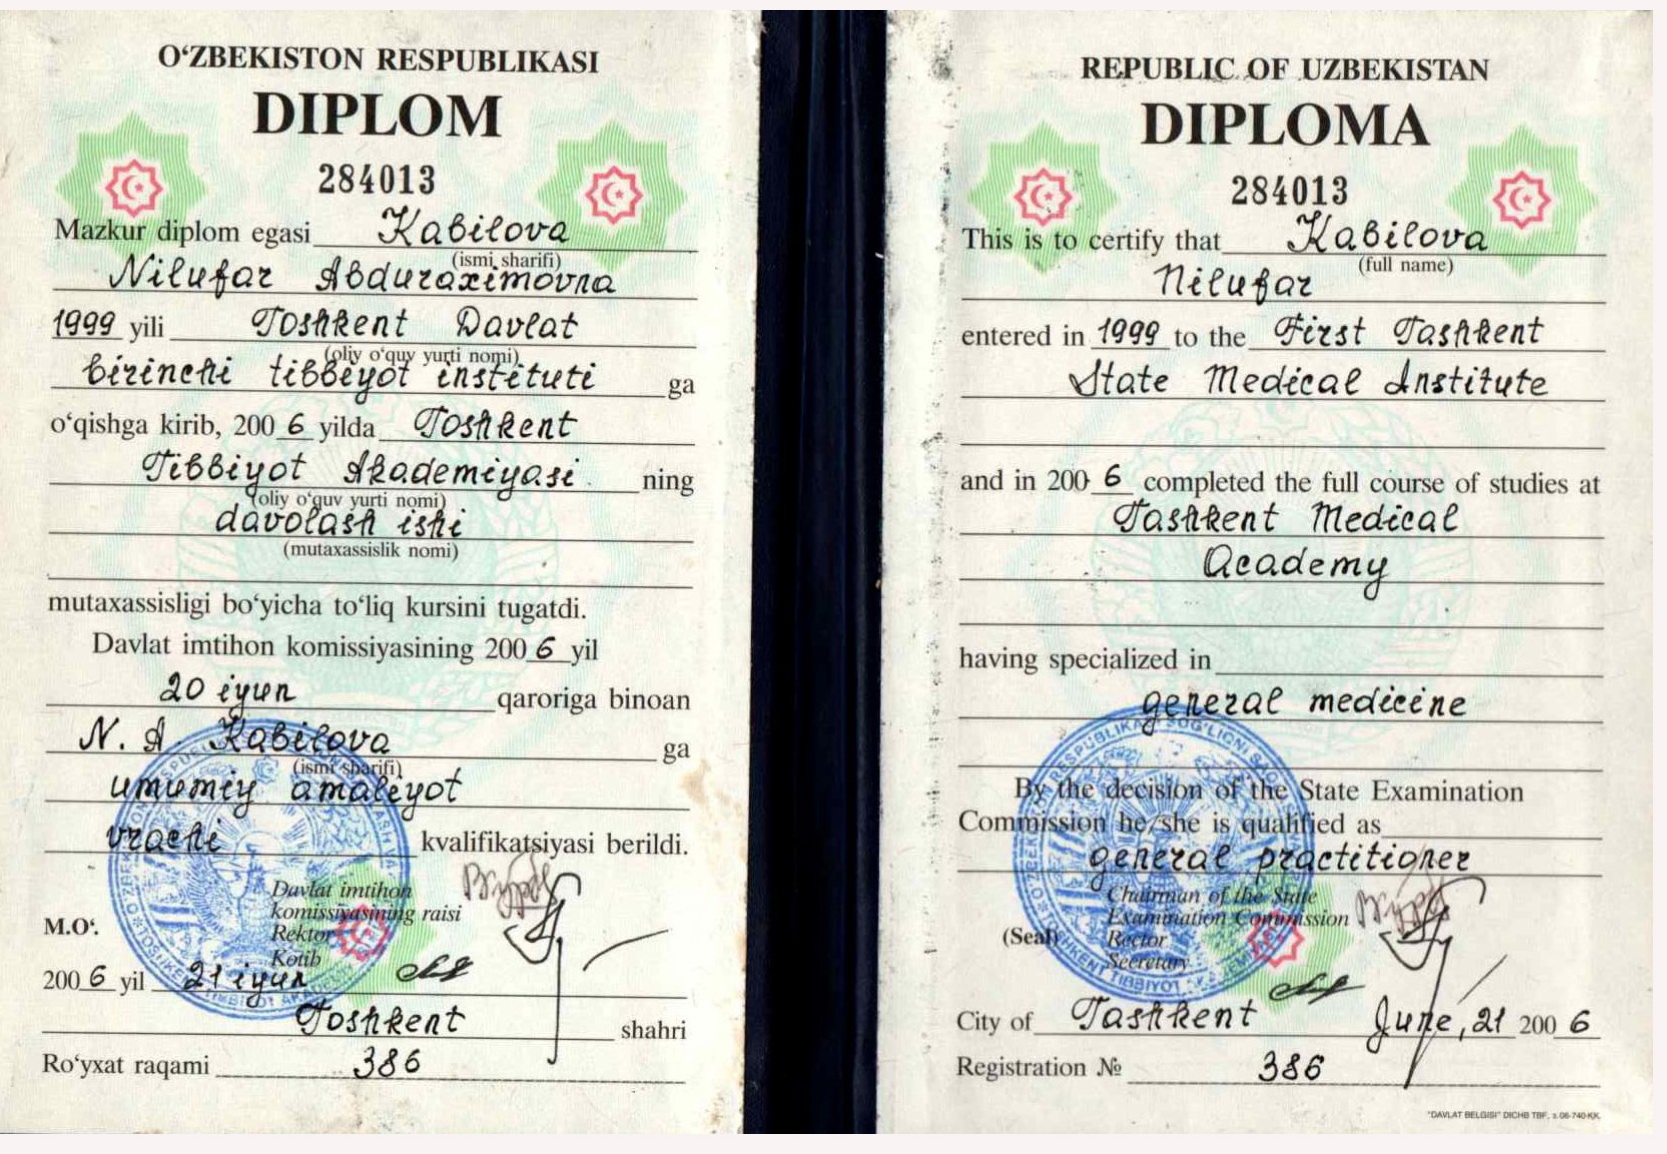 O‘ZBEKISTON RESPUBLIKASI
DIPLOM
284013
Mazkur diplom egasi Kabilova
(ismi sharifi)
Nilufar Abduraximovna
1999 yili Toshkent Davlat
(oliy o‘quv yurti nomi)
birinchi tibbiyot instituti ga
o‘qishga kirib, 2006 yilda Toshkent
Tibbiyot Akademiyasi ning
(oliy o‘quv yurti nomi)
davolash ishi
(mutaxassislik nomi)
mutaxassisligi bo‘yicha to‘liq kursini tugatdi.
Davlat imtihon komissiyasining 2006 yil
20 iyun qaroriga binoan
N. A. Kabilova ga
(ismi sharifi)
umumiy amaliyot
vrachi kvalifikatsiyasi berildi.
Davlat imtihon
komissiyasining raisi
M.O‘.
Rektor
Kotib
2006 yil 21 iyun
Toshkent shahri
Ro‘yxat raqami 386
REPUBLIC OF UZBEKISTAN
DIPLOMA
284013
This is to certify that Kabilova
(full name)
Nilufar
entered in 1999 to the First Tashkent
State Medical Institute
and in 2006 completed the full course of studies at
Tashkent Medical
Academy
having specialized in
general medicine
By the decision of the State Examination
Commission he/she is qualified as
general practitioner
Chairman of the State
Examination Commission
(Seal)
Rector
Secretary
City of Tashkent June, 21 2006
Registration № 386
"DAVLAT BELGISI" DICHB TBF, z.06-740-KK.